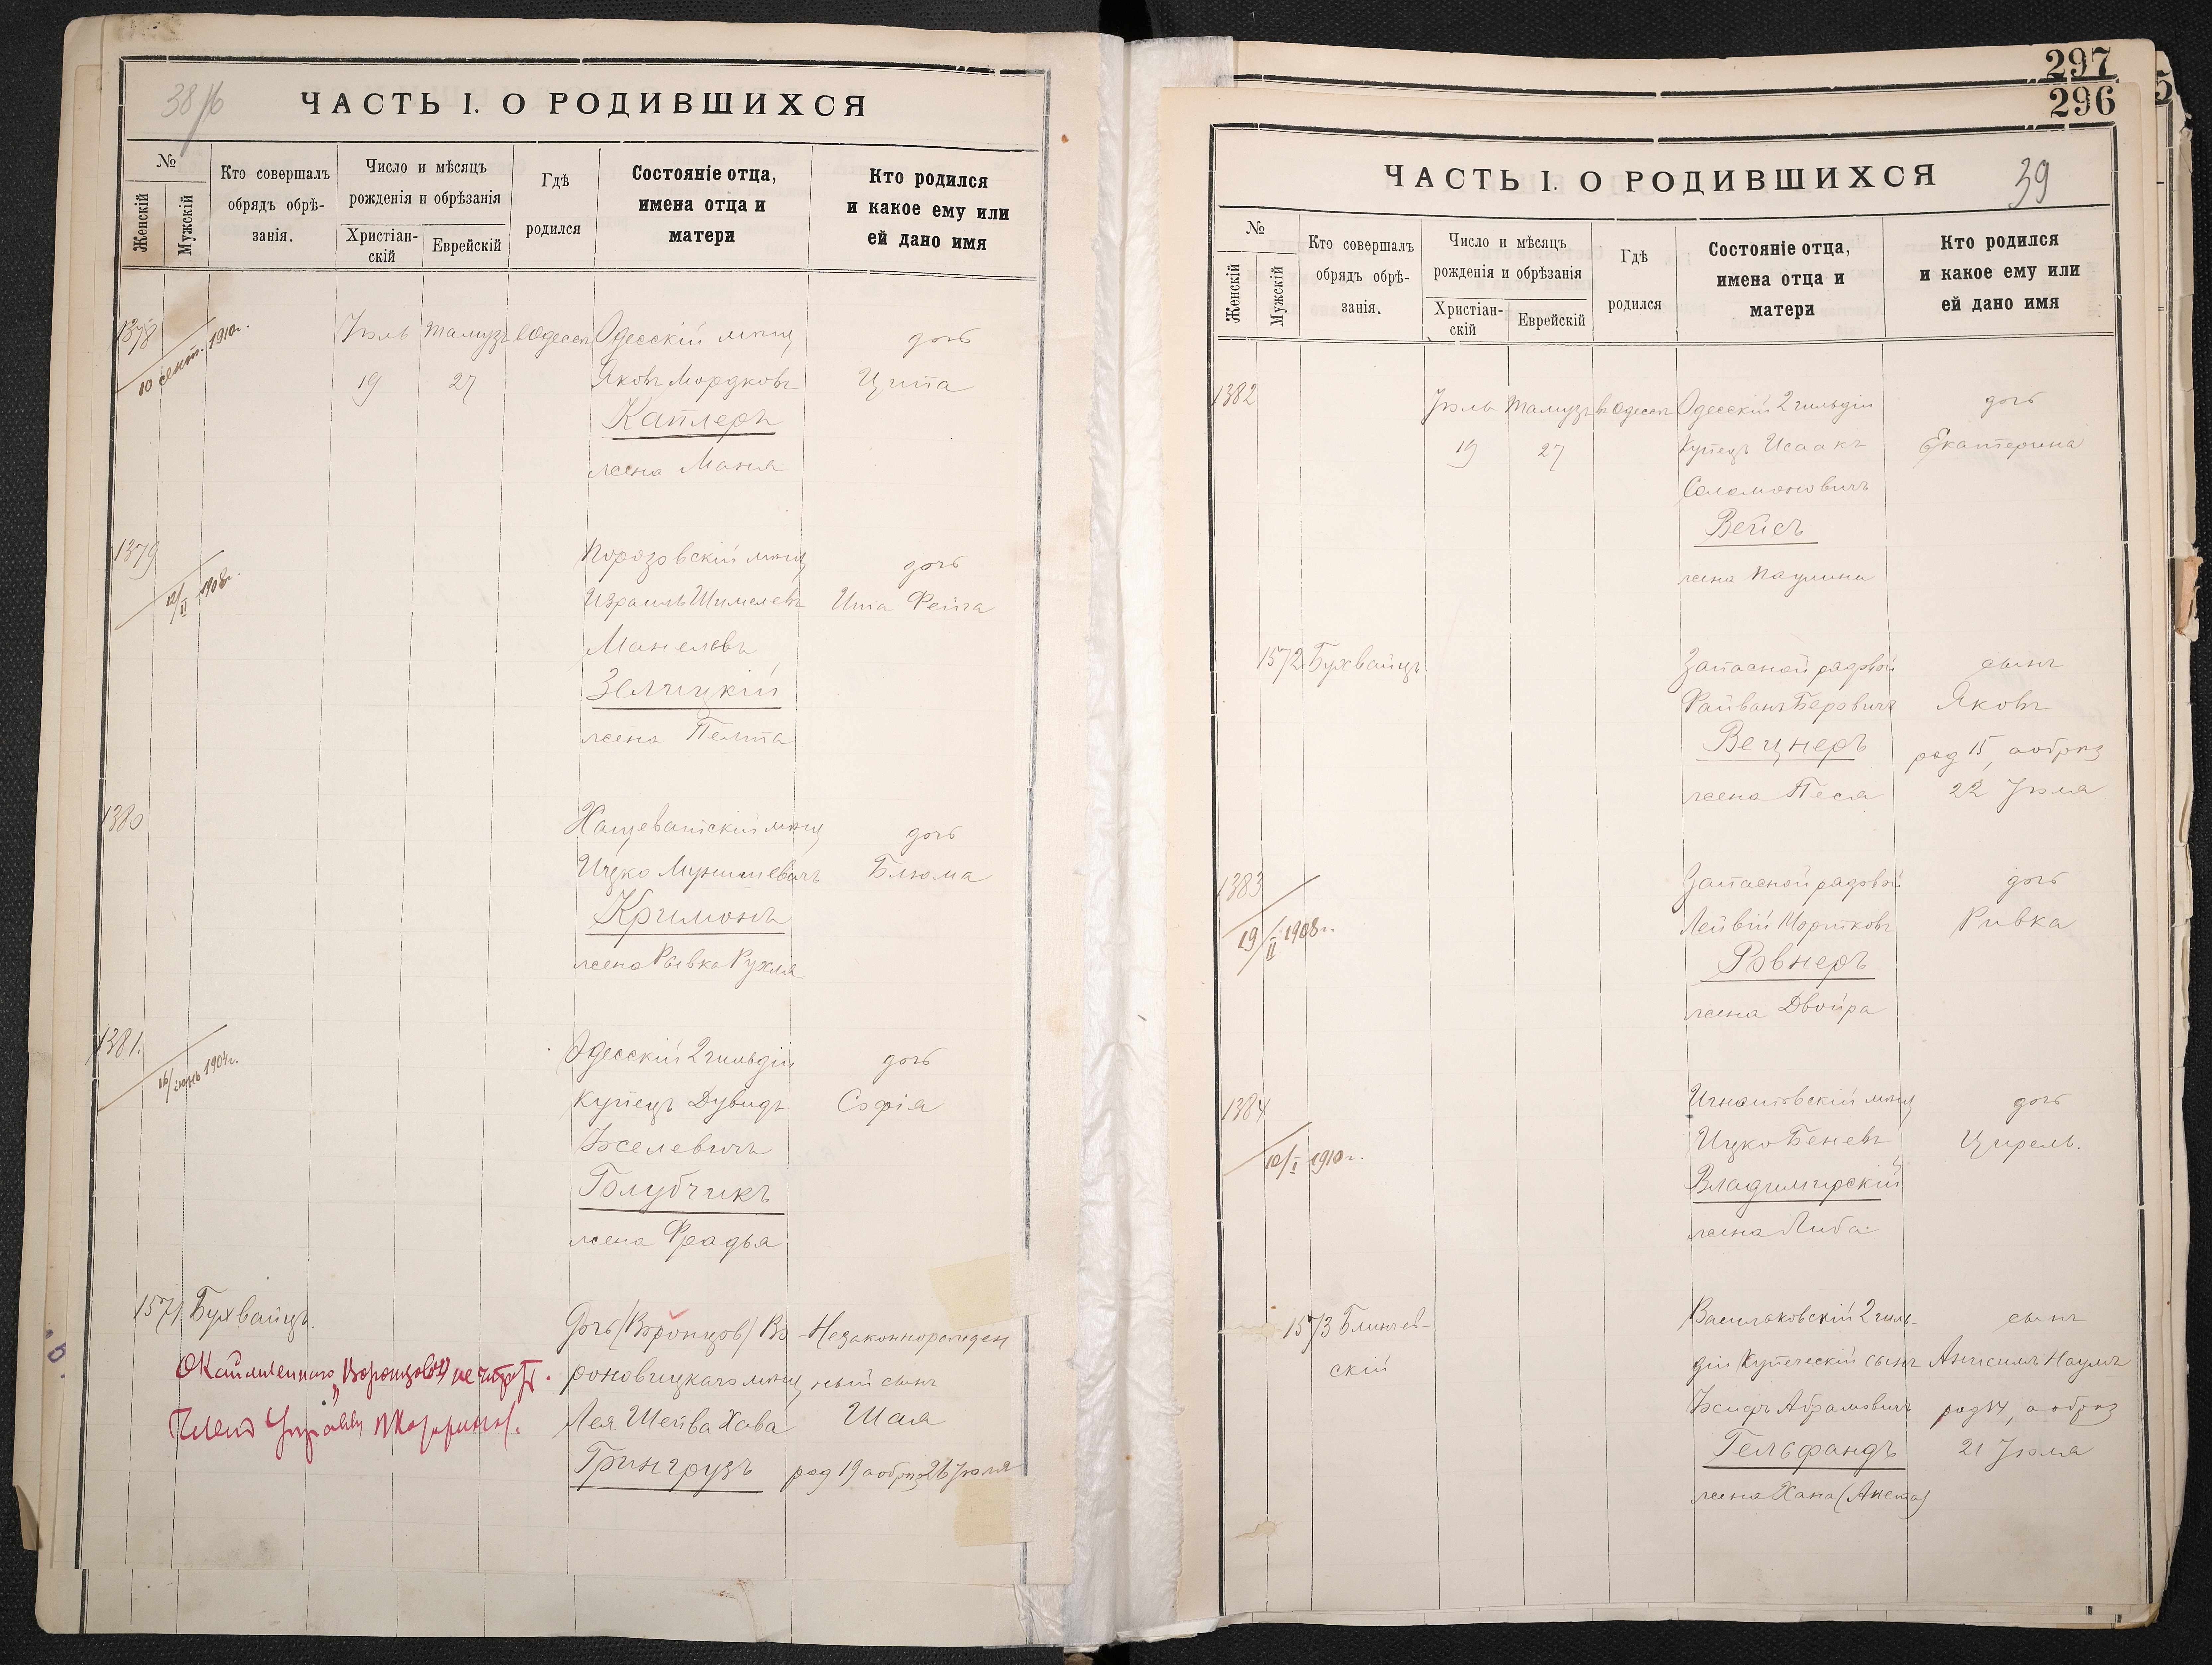 38/16
ЧАСТЬ I. О РОДИВШИХСЯ
№
Женскій
Мужскій
Кто совершалъ
обрядъ обрѣ-
занія.
Число и мѣсяцъ
рожденія и обрѣзанія
Христіан-
скій
Еврейскій
Гдѣ
родился
Состояніе отца,
имена отца и
матери
Кто родился
и какое ему или
ей дано имя
1378 Іюль Тамузъ въ Одессѣ Одесскій мѣщ дочь
10 сент. 1910г.
19 27 Яковъ МордковъЦипа
Каплеръ
жена Маня
1379 Порозовскій мѣщ дочь
12/II 1908г.
Израиль Шмилевъ Ита Фейга
Манелевъ
Зелицкій
жена Песта
1380 Хащеватскій мѣщ дочь
Ицко Мунишевичъ Блюма
Кримонъ
жена Рывка Рухля
1381. Одесскій 2 гильдіи дочь
16/іюнь 1904г.
Купецъ Дувидъ Софія
Іоселевичъ
Голубчикъ
жена Фрадья
1571 Бухвайцъ. Дочь (Воронцов) Во- Незаконнорожден
роновицкаго мѣщ ный сынъ
Лея Шейва Хава Шая
Грингрузъ род 19 а обрѣз 26 Іюля
Окаймленнаго „Воронцов" не читать.
297
296
ЧАСТЬ I. О РОДИВШИХСЯ
39
№
Женскій
Мужскій
Кто совершалъ
обрядъ обрѣ-
занія.
Число и мѣсяцъ
рожденія и обрѣзанія
Христіан-
скій
Еврейскій
Гдѣ
родился
Состояніе отца,
имена отца и
матери
Кто родился
и какое ему или
ей дано имя
1382 Іюль Тамузъ въ Одессѣ Одесскій 2 гильдіи дочь
19 27 Купецъ Исаакъ Екатерина
Соломоновичъ
Вейсъ
жена Паулина
1572 Бухвайцъ Запасной рядовой сынъ
Файванъ Беровичъ Яковъ
Вецнеръ род 15, а обрѣз
жена Песя 22 Іюля
1383 Запасной рядовой дочь
19/II 1908г.
Лейвій Мортковъ Ривка
Ровнеръ
жена Двойра
1384 Игнатовскій мѣщ дочь
10/I 1910г.
Ицко Беневъ Цирель.
Владимирскій
жена Либа
1573 Блинчев- Васильковскій 2 гиль- сынъ
скій діи Купеческій сынъ Анисимъ Наумъ
Іосифъ Абрамовичъ род 14, а обрѣз
Гельфандъ 21 Іюля
жена Хана (Анета)